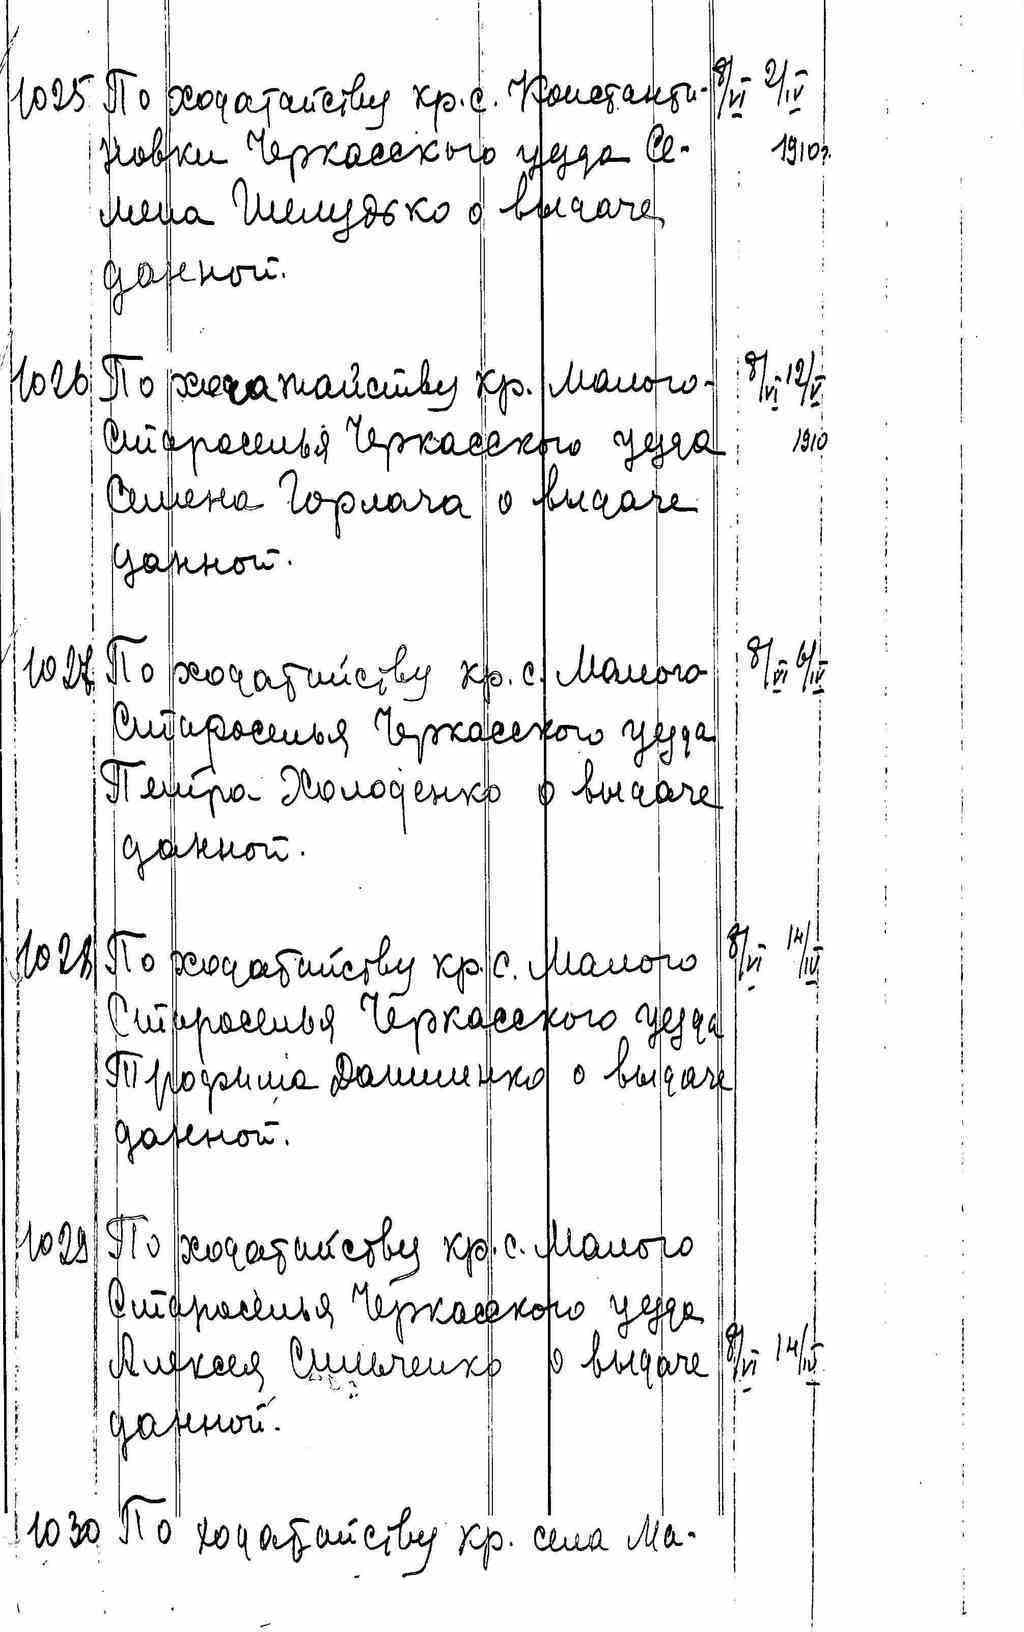 1025 По ходатайству кр. с. Константи- 8/VI 2/IV
новки Черкасского уезда Се- 1910г.
мена Шелудько о выдаче
данной.
1026 По ходатайству кр. Малого- 8/VI 12/V
Староселья Черкасского уезда 1910
Семена Горлача о выдаче
данной.
1027 По ходатайству кр. с. Малого 8/VI 6/IV
Староселья Черкасского уезда
Петра Холоденко о выдаче
данной.
1028 По ходатайству кр. с. Малого 8/VI 14/IV
Староселья Черкасского уезда
Трофима Даниленко о выдаче
данной.
1029 По ходатайству кр. с. Малого
Староселья Черкасского уезда
Алексея Сильченко о выдаче 8/VI 14/IV
данной.
1030 По ходатайству кр. села Ма-